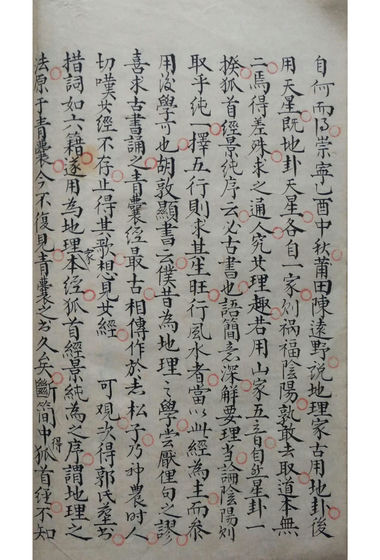 自何而得崇寧己酉中秋莆田陳遠野說地理家古用地卦後
用天星既地卦天星各自一家則禍福陰陽孰敢去取道本無
二焉得差殊求之通人究其理趣若用山家五音自與星卦一
揆狐首經景純序云必古書也語簡意深解要理當論陰陽則
取乎純一擇五行則求其生旺行風水者當以此經為主而叅
用後學可也胡敦顯書云僕昔為地理之學嘗厭俚句之謬
喜求古書誦之青囊經曰取古相傳作於赤松子乃神農時人
切嘆其經不存止得其歌想見其經 可观次得郭氏塟书
措詞如六籍遂用為地理家本經狐首經景純為之序謂地理之
法原于青囊今不復見青囊之书久矣斷簡中得狐首經不知